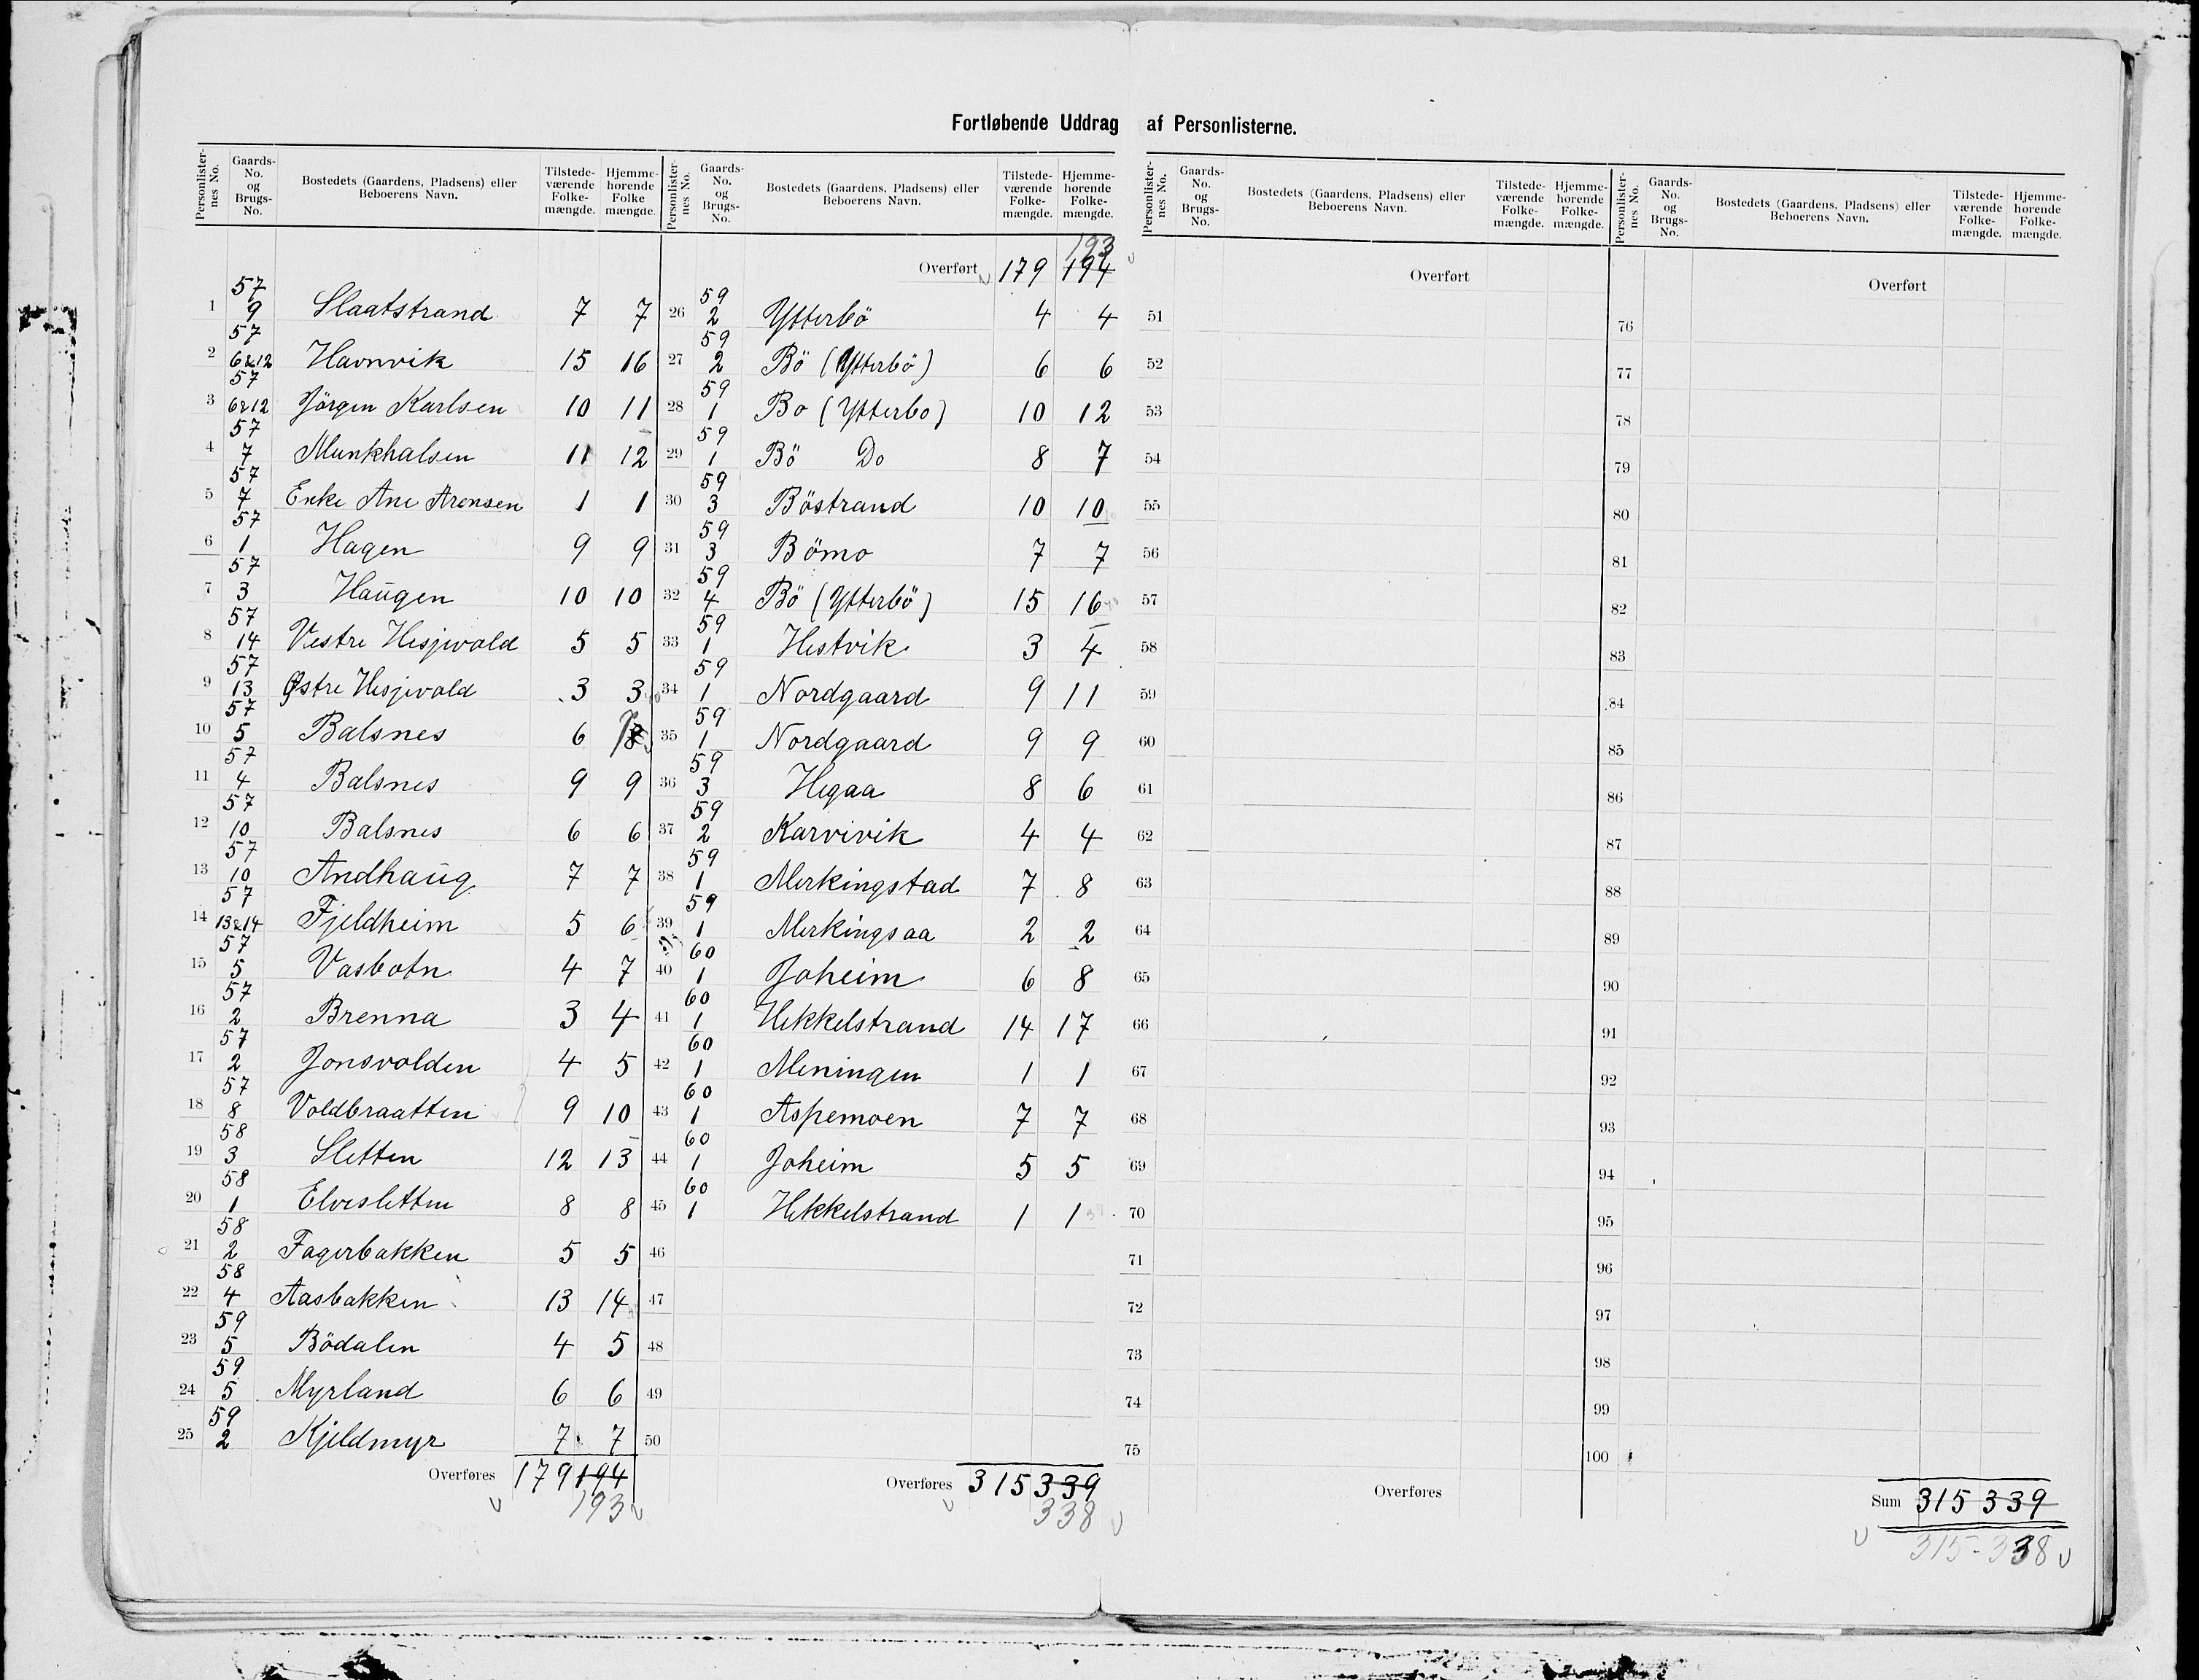 Fortløbende Uddrag af Personlisterne.
Personlisternes No. Gaards-No. og Brugs-No. Bostedets (Gaardens, Pladsens) eller Beboerens Navn. Tilstedeværende Folkemængde. Hjemmehørende Folkemængde.
1 57 9 Slaatstrand 7 7
2 57 6&12 Havnvik 15 16
3 57 6&12 Jörgen Karlsen 10 11
4 57 7 Munkhalsen 11 12
5 57 7 Enke Ane Arensen 1 1
6 57 1 Hagen 9 9
7 57 3 Haugen 10 10
8 57 14 Vestre Hesjevold 5 5
9 57 13 Østre Hesjevold 3 3
10 57 5 Balsnes 6 7
11 57 4 Balsnes 9 9
12 57 10 Balsnes 6 6
13 57 10 Andhaug 7 7
14 57 13&14 Fjeldheim 5 6
15 57 5 Vasbotn 4 7
16 57 2 Brenna 3 4
17 57 2 Jonsvolden 4 5
18 57 8 Voldbraatten 9 10
19 58 3 Sletten 12 13
20 58 1 Elvesletten 8 8
21 58 2 Fagerbakken 5 5
22 58 4 Aasbakken 13 14
23 59 5 Bödalen 4 5
24 59 5 Myrland 6 6
25 59 2 Kjeldmyr 7 7
Overføres 179 194
193
Personlisternes No. Gaards-No. og Brugs-No. Bostedets (Gaardens, Pladsens) eller Beboerens Navn. Tilstedeværende Folkemængde. Hjemmehørende Folkemængde.
193
Overført 179 194
26 59 2 Ytterbö 4 4
27 59 2 Bö (Ytterbö) 6 6
28 59 1 Bo (Ytterbo) 10 12
29 59 1 Bö Do 8 7
30 59 3 Böstrand 10 10
31 59 3 Bömo 7 7
32 59 4 Bö (Ytterbö) 15 16
33 59 1 Hestvik 3 4
34 59 1 Nordgaard 9 11
35 59 1 Nordgaard 9 9
36 59 3 Hegaa 8 6
37 59 2 Karvivik 4 4
38 59 1 Merkingstad 7 8
39 59 1 Merkingsaa 2 2
40 60 1 Joheim 6 8
41 60 1 Hekkelstrand 14 17
42 60 1 Meningen 1 1
43 60 1 Aspemoen 7 7
44 60 1 Joheim 5 5
45 60 1 Hekkelstrand 1 1
46
47
48
49
50
Overføres 315 339
338
Personlisternes No. Gaards-No. og Brugs-No. Bostedets (Gaardens, Pladsens) eller Beboerens Navn. Tilstedeværende Folkemængde. Hjemmehørende Folkemængde.
Overført
51
52
53
54
55
56
57
58
59
60
61
62
63
64
65
66
67
68
69
70
71
72
73
74
75
Overføres
Personlisternes No. Gaards-No. og Brugs-No. Bostedets (Gaardens, Pladsens) eller Beboerens Navn. Tilstedeværende Folkemængde. Hjemmehørende Folkemængde.
Overført
76
77
78
79
80
81
82
83
84
85
86
87
88
89
90
91
92
93
94
95
96
97
98
99
100
Sum 315 339
315-338